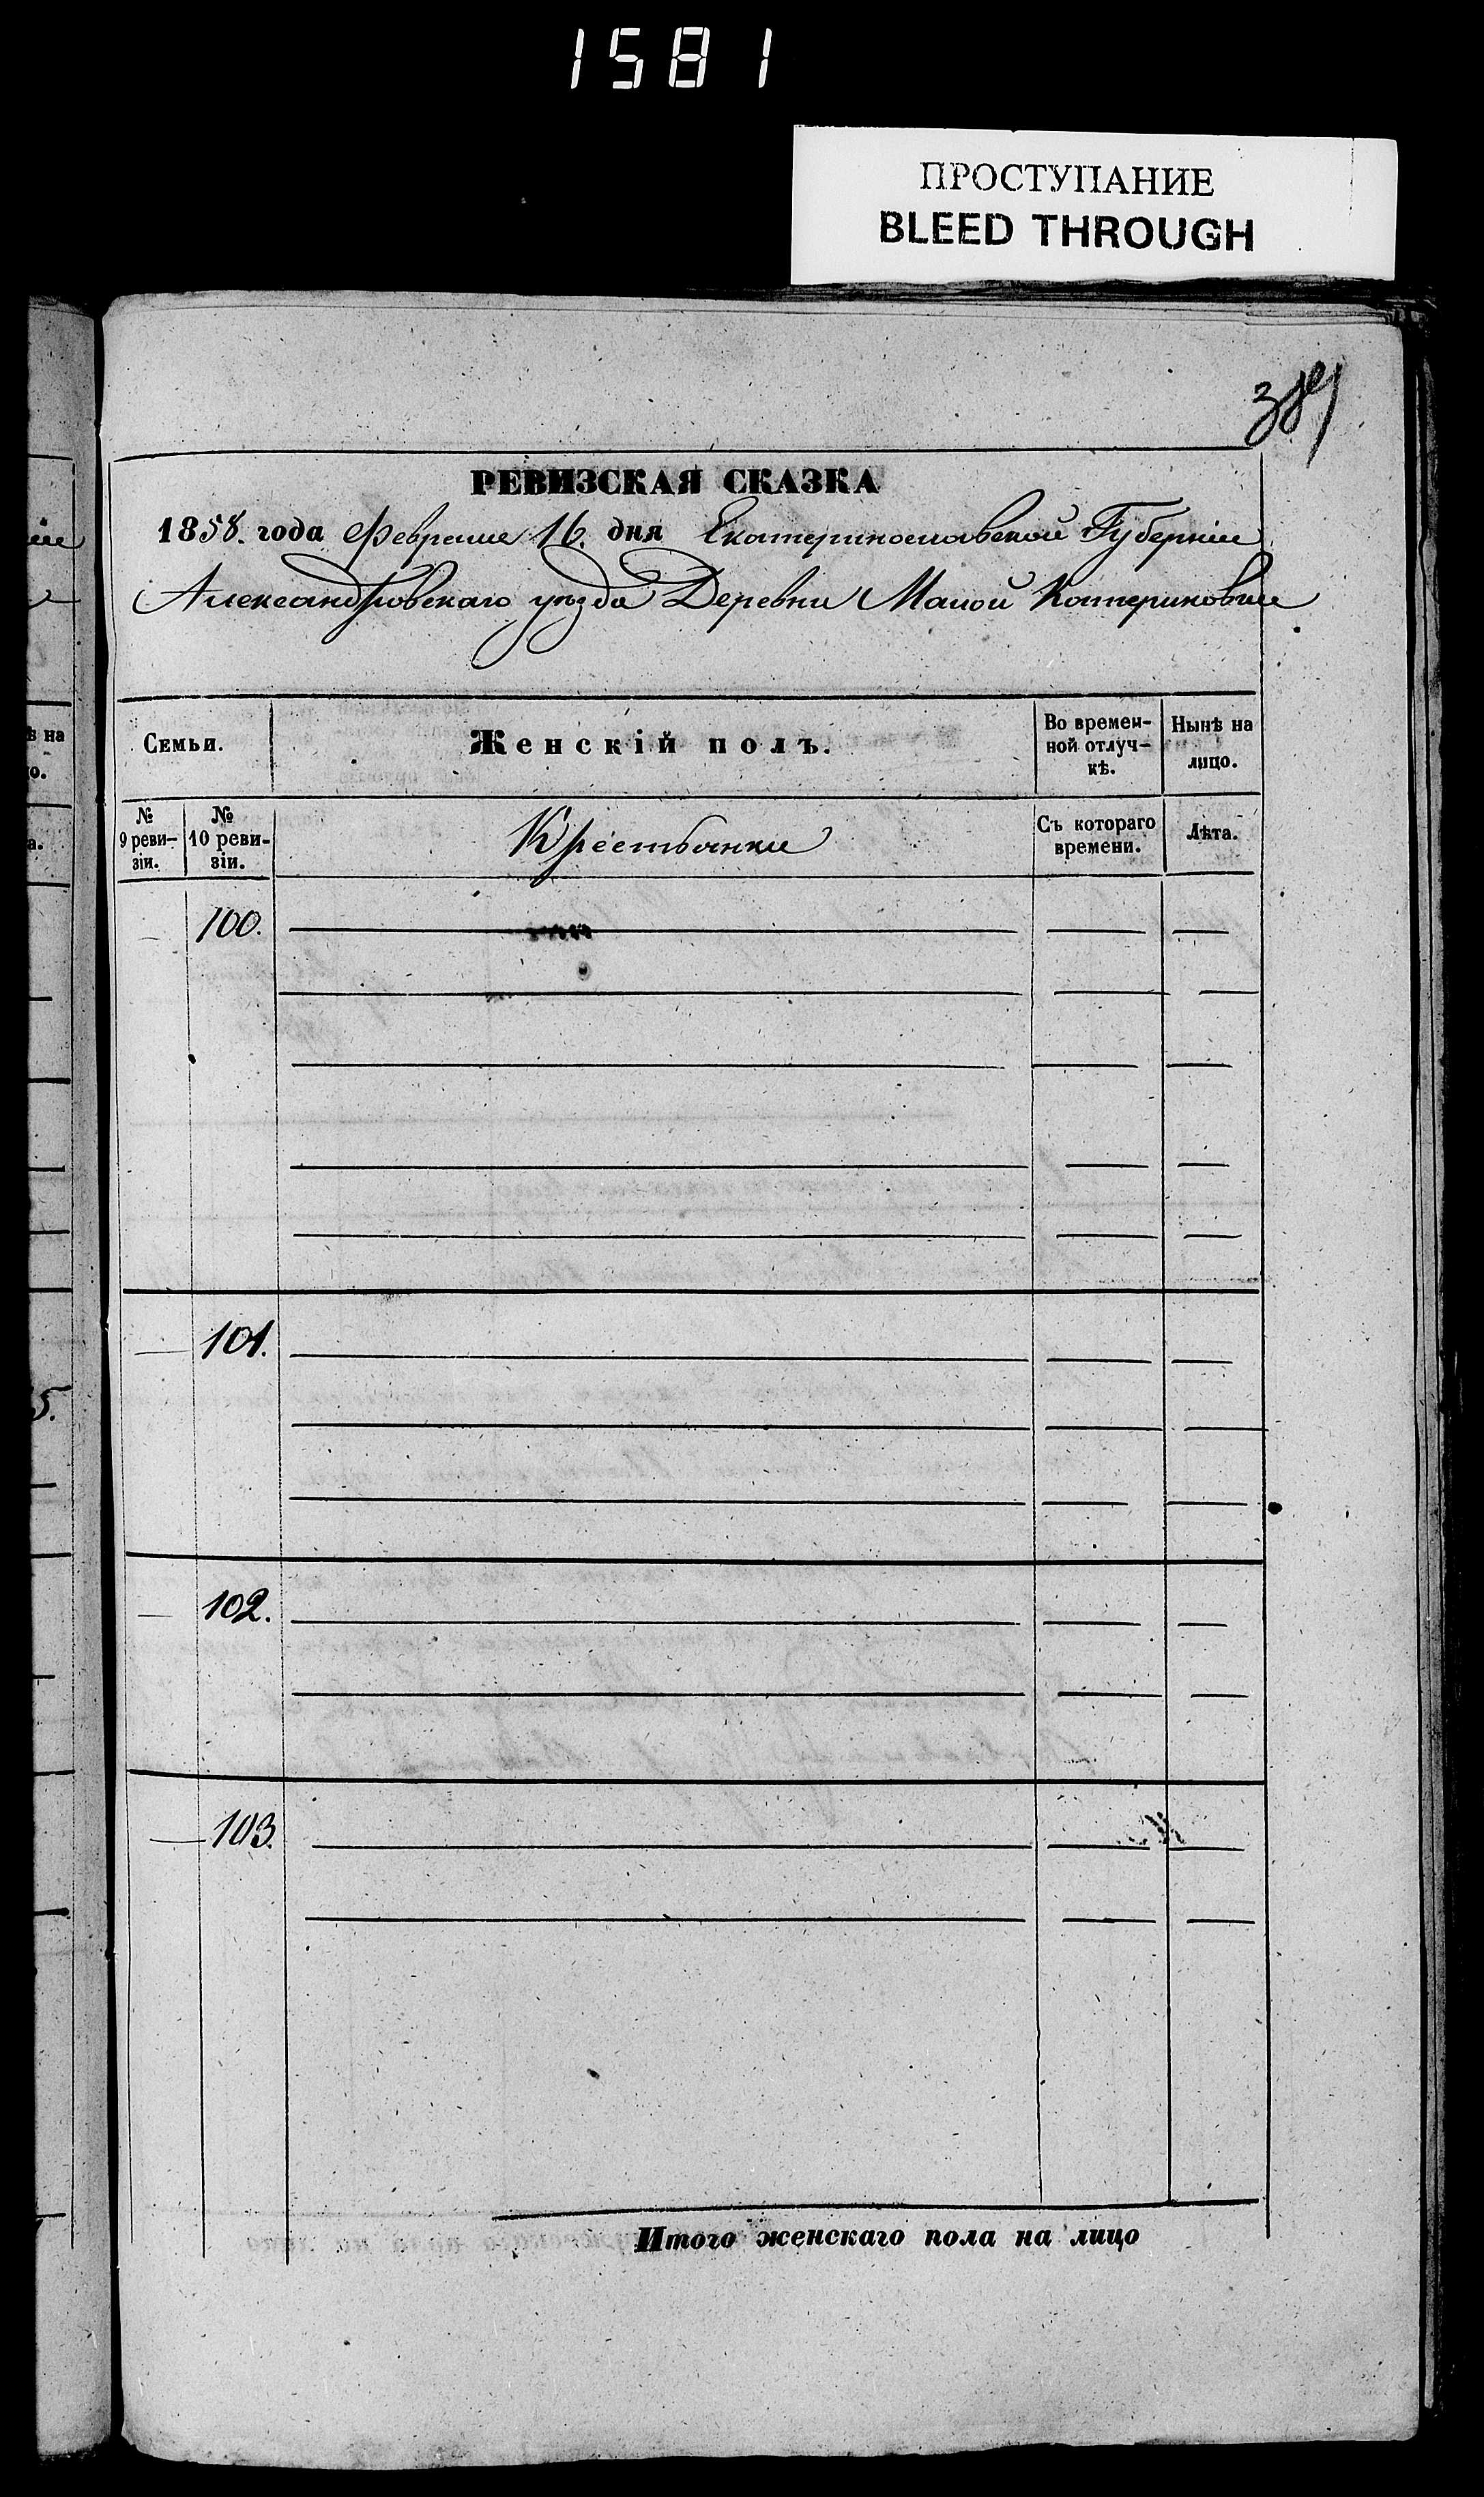 1581
ПРОСТУПАНИЕ
BLEED THROUGH
РЕВИЗСКАЯ СКАЗКА
1858. года Февраля 16. дня Екатеринославской Губерніи
Александровскаго уѣзда Деревни Малой Катериновки
Семьи.
Женскій полъ.
Во времен-
ной отлуч-
кѣ.
Нынѣ на
лицо.
№
9 реви-
зіи.
№
10 реви-
зіи.
Крестьянки
Съ котораго
времени.
Лѣта.
100.
101.
102.
103.
Итого женскаго пола на лицо